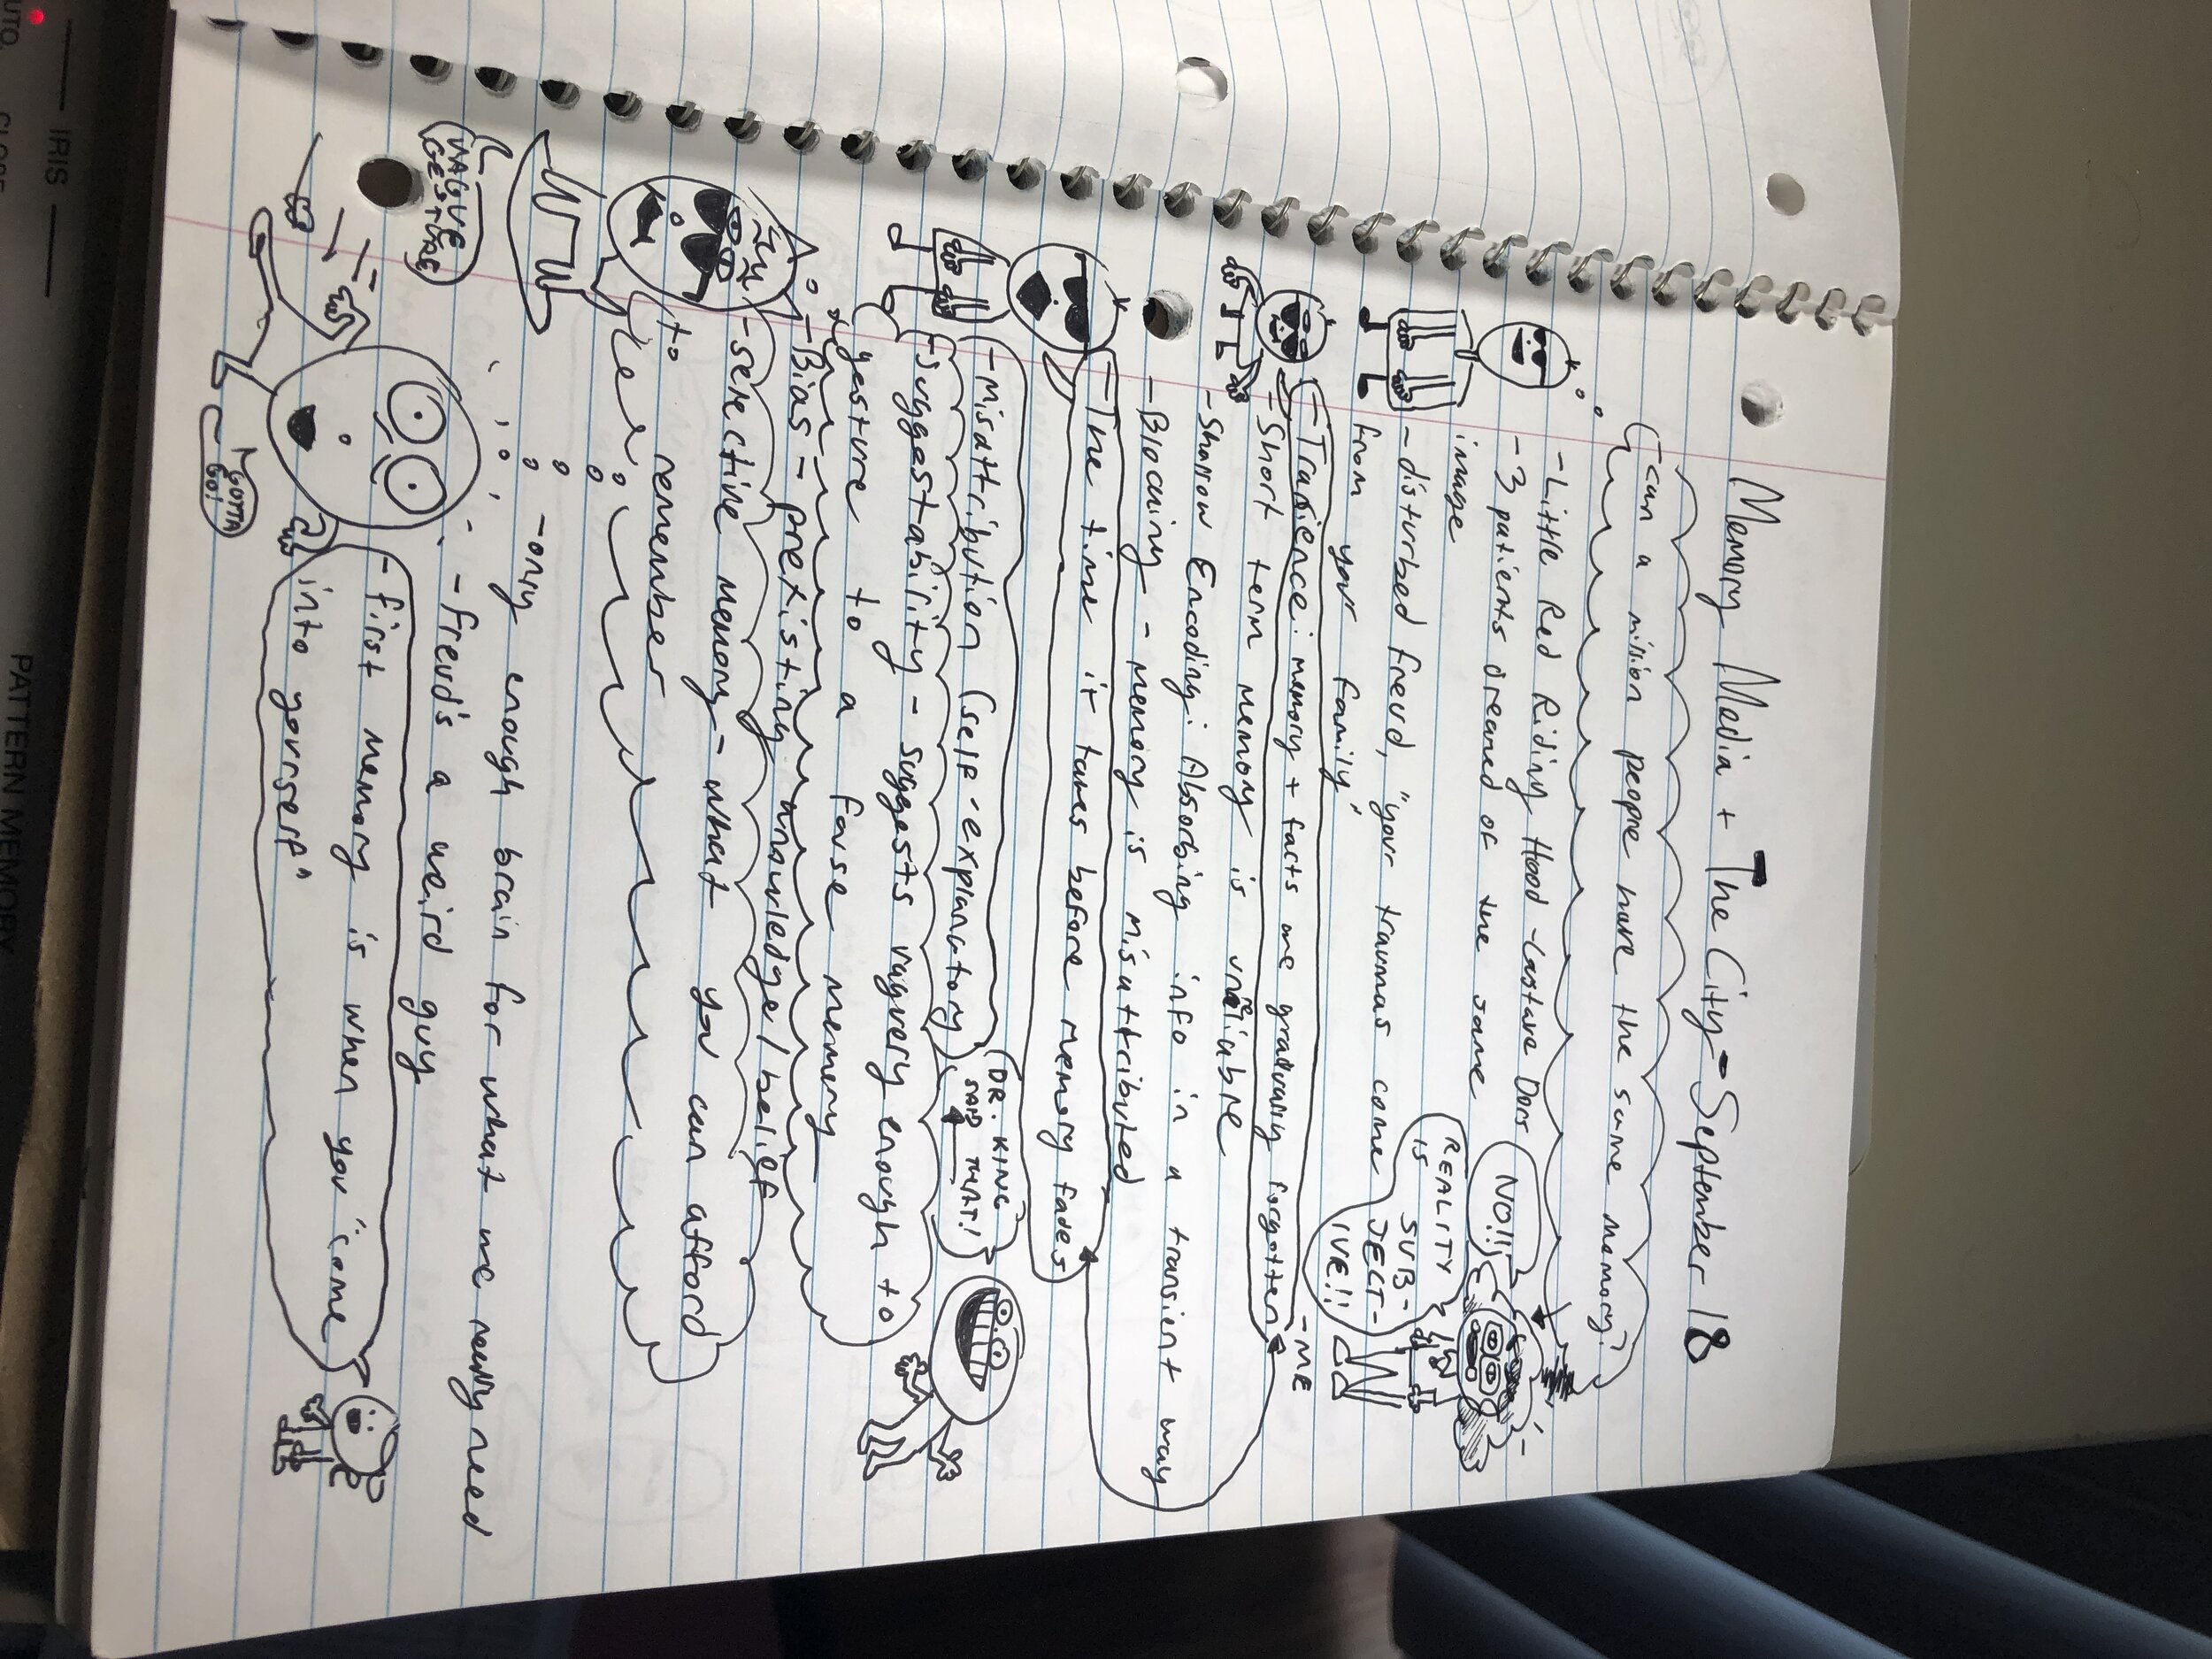 Memory Media + The City - September 18
- Can a million people have the same memory?
- Little Red Riding Hood - Gustave Dors
- 3 patients dreamed of the same
image
- disturbed freud, "your traumas come
from your family"
NO!!
REALITY
IS
SUB-
JECT-
IVE!!
- Transience: memory + facts are gradually forgotten
- ME
- Short term memory is unreliable
- Shallow Encoding: Absorbing info in a transient way
- Blocking - memory is misattributed
- The time it takes before memory fades
- Misattribution (self-explanatory)
DR. KING
SAID THAT!
- Suggestability - suggests vaguely enough to
* gesture to a false memory
- Bias - prexisting knowledge/belief
- selective memory - what you can afford
to remember
VAGUE
GESTURE
- only enough brain for what we really need
- freud's a weird guy
- first memory is when you "come
into yourself"
GOTTA
GO!
IRIS
PATTERN MEMORY